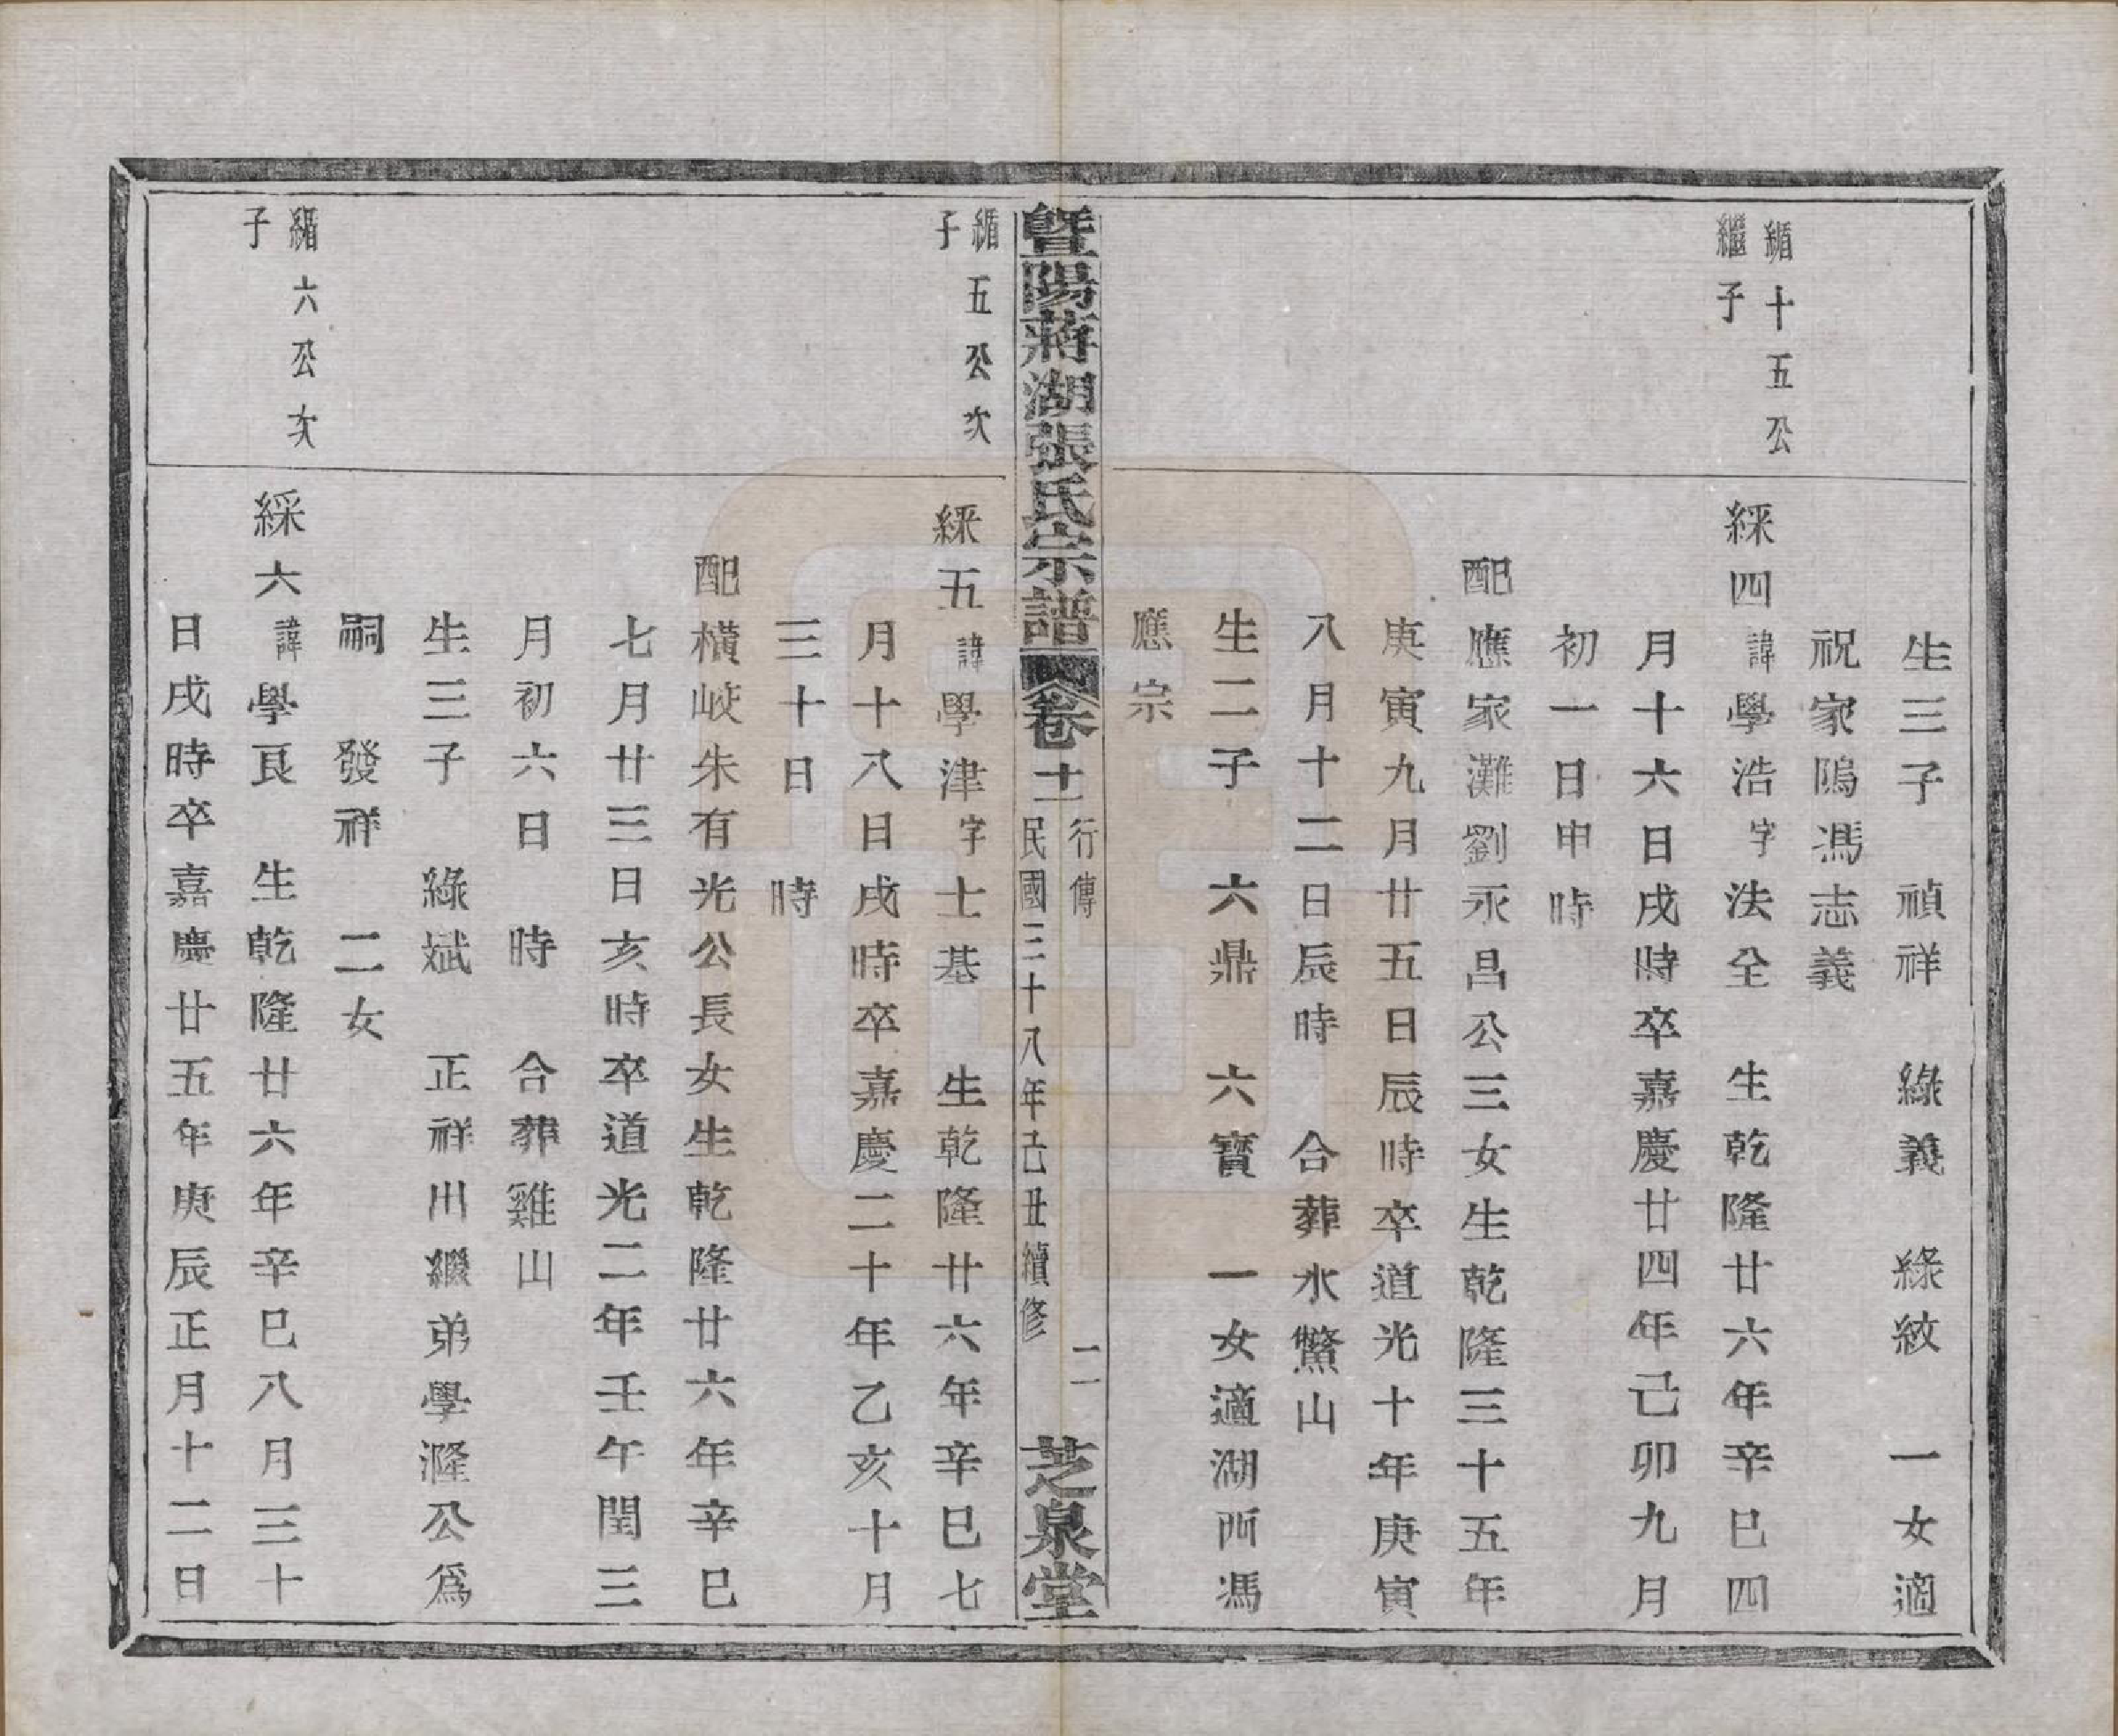 生三子　禎祥　綠義　綠紋　一女適
祝家隝馮志義
緧十五公
繼子
綵四諱學浩字法全　生乾隆廿六年辛巳四
月十六日戌時卒嘉慶廿四年己卯九月
初一日申時
配應家灘劉永昌公三女生乾隆三十五年
庚寅九月廿五日辰時卒道光十年庚寅
八月十二日辰時　合葬水鱉山
生二子　六鼎　六寶　一女適湖西馮
應宗
暨陽蔣湖張氏宗譜卷十一
行傳　二
民國三十八年己丑續修
芝泉堂
緧五公次
子
綵五諱學津字士基　生乾隆廿六年辛巳七
月十八日戌時卒嘉慶二十年乙亥十月
三十日　時
配橫岐朱有光公長女生乾隆廿六年辛巳
七月廿三日亥時卒道光二年壬午閏三
月初六日　時　合葬雞山
生三子　綠斌　正祥出繼弟學漋公爲
嗣　發祥　二女
緧六公次
子
綵六諱學良　生乾隆廿六年辛巳八月三十
日戌時卒嘉慶廿五年庚辰正月十二日